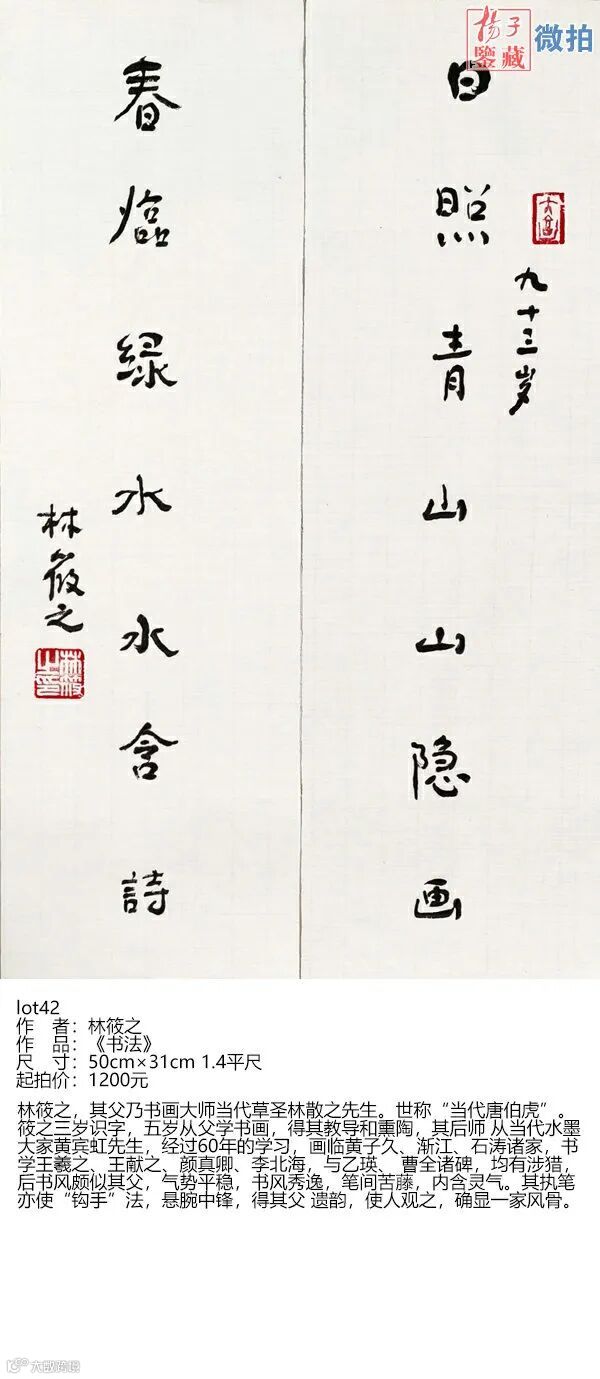 杨子
鑒藏
微拍
日照青山山隐画
九十三岁
春临綠水水含詩
林筱之
林筱之印
lot42
作　者：林筱之
作　品：《书法》
尺　寸：50cm×31cm 1.4平尺
起拍价：1200元
林筱之，其父乃书画大师当代草圣林散之先生。世称“当代唐伯虎”。
筱之三岁识字，五岁从父学书画，得其教导和熏陶，其后师 从当代水墨
大家黄宾虹先生，经过60年的学习，画临黄子久、渐江、石涛诸家，书
学王羲之、王献之、颜真卿、李北海，与乙瑛、 曹全诸碑，均有涉猎，
后书风颇似其父，气势平稳，书风秀逸，笔间苦藤，内含灵气。其执笔
亦使“钩手”法，悬腕中锋，得其父 遗韵，使人观之，确显一家风骨。
大数跨境